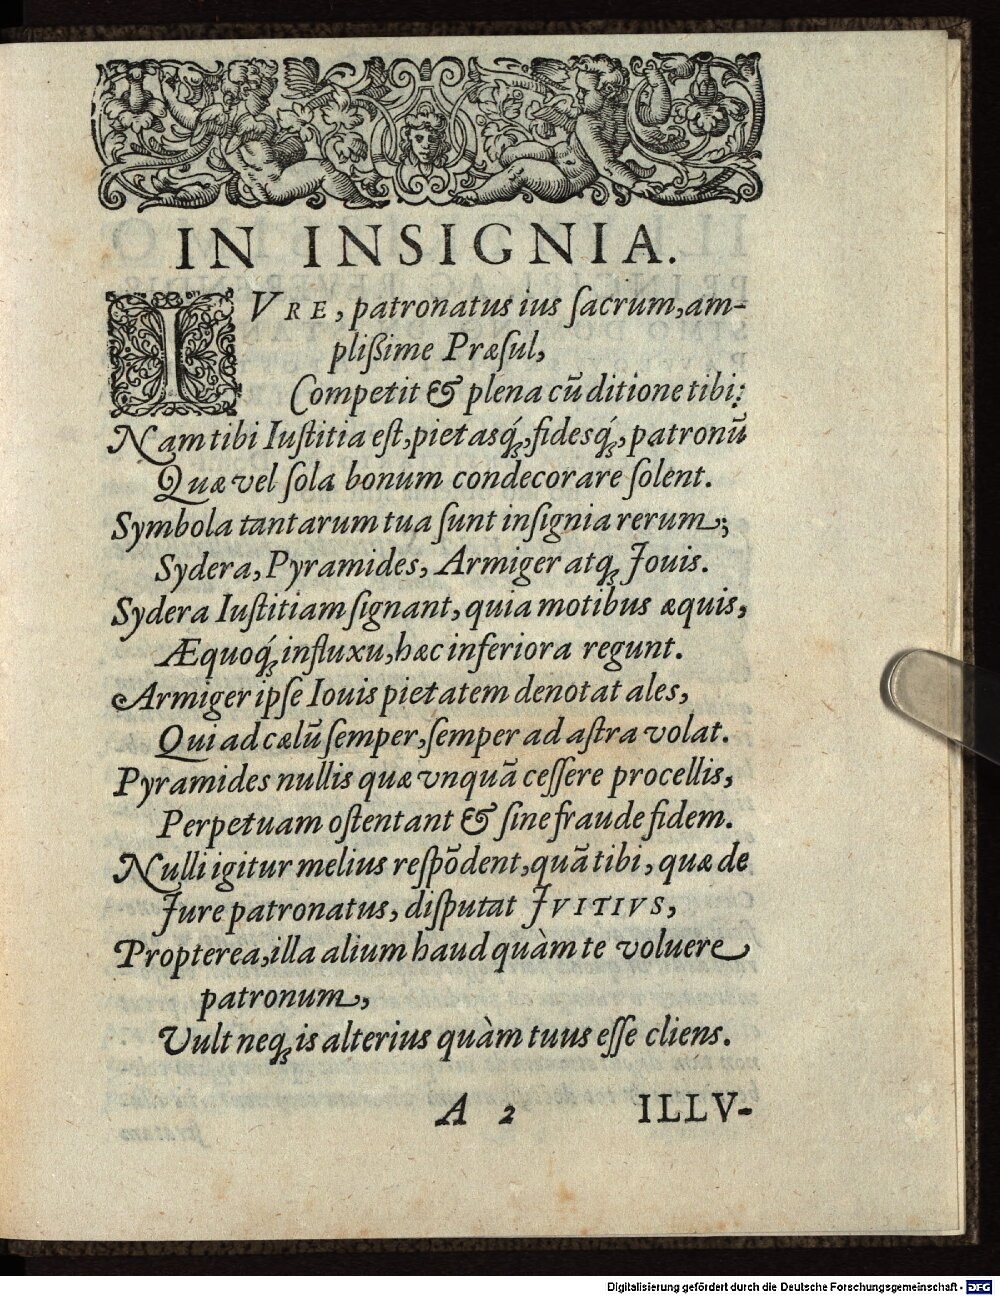 IN INSIGNIA.
IVRE, patronatus ius ſacrum, am-
pliſſime Præſul,
Competit & plena cū ditione tibi:
Nam tibi Iuſtitia eſt, pietasq́;, fidesq́;, patronū
Quæ vel ſola bonum condecorare ſolent.
Symbola tantarum tua ſunt inſignia rerum;
Sydera, Pyramides, Armiger atq; Jouis.
Sydera Iuſtitiam ſignant, quia motibus æquis,
Æquoq́; influxu, hæc inferiora regunt.
Armiger ipſe Iouis pietatem denotat ales,
Qui ad cælū ſemper, ſemper ad aſtra volat.
Pyramides nullis quæ vnquā ceſſere procellis,
Perpetuam oſtentant & ſine fraude fidem.
Nulli igitur melius reſpōdent, quā tibi, quæ de
Jure patronatus, diſputat JVITIVS,
Propterea, illa alium haud quàm te voluere
patronum,
Vult neq; is alterius quàm tuus eſſe cliens.
A 2 ILLV-
Digitalisierung gefördert durch die Deutsche Forschungsgemeinschaft - DFG